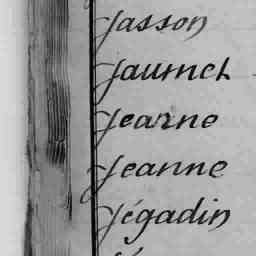 Jasson
Jaumel
Jearne
Jeanne
Jégadin